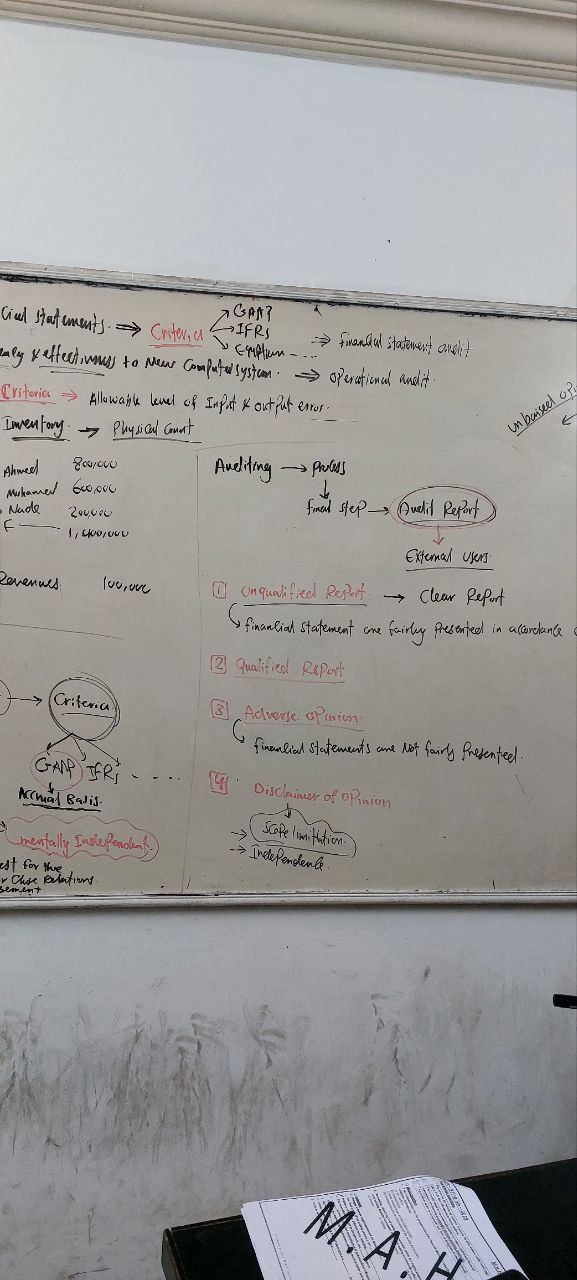 cial statements. ⇒ Criteria → GAAP
→ IFRs
→ Egyptian - - - ⇒ financial statement audit
& effectiveness to New Computer system. ⇒ operational audit.
Criteria ⇒ Allowable level of Input & output error.
Inventory. → Physical Count
unbaised opi
Ahmed 800,000
Mohamed 600,000
Nade 200,000
F — 1,400,000
Revenues 100,000
→ Criteria
GAAP IFRs - - - -
Accrual Basis.
mentally Independent
est for the
r Close Relations.
sement
Auditing → process
final step → Audit Report
External users
1 Unqualified Report → Clear Report.
financial statement are fairly presented in accordance
2 Qualified Report
3 Adverse opinion.
financial statements are Not fairly Presented.
4 Disclaimer of opinion.
→ Scope limitation.
→ Independence
M.A.H